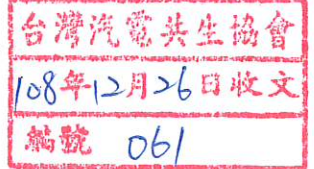 台灣汽電共生協會
108年12月26日收文
編號 061